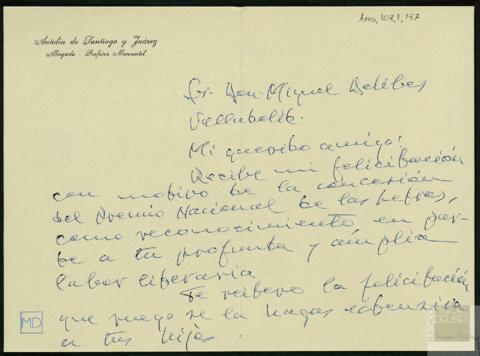 AMD, 108, 1, 157
Antolín de Santiago y Juárez
Abogado - Profesor Mercantil
Sr. Don Miguel Delibes
Valladolid.
Mi querido amigo:
Recibe mi felicitación
con motivo de la concesión
del Premio Nacional de las Letras,
como reconocimiento en par-
te a tu profunda y amplia
labor literaria.
Te reitero la felicitación
que ruego se la hagas extensiva
a tus hijos.
MD